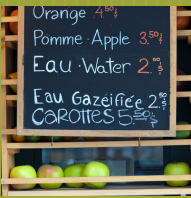 Orange 4.50$
Pomme·Apple 3.50$
Eau·Water 2.$
Eau Gazéifiée 2.50$
Carottes 5.50$